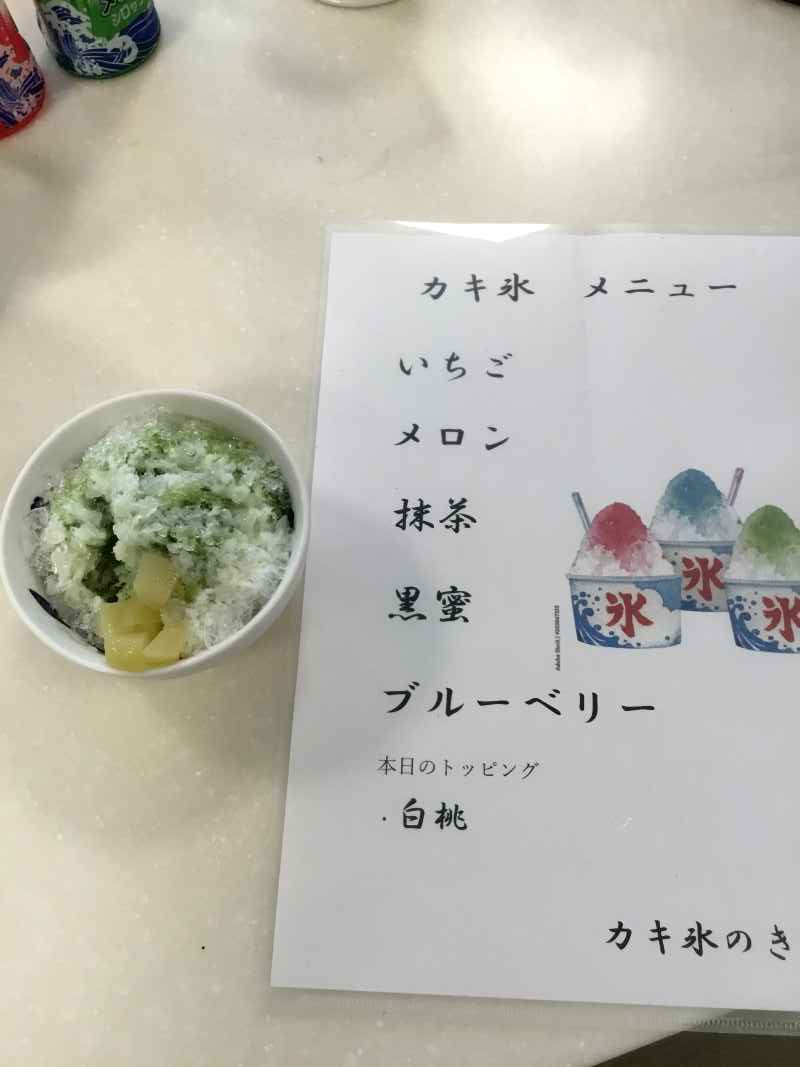 シロップ
カキ氷 メニュー
いちご
メロン
抹茶
黒蜜
ブルーベリー
氷
氷
氷
本日のトッピング
・白桃
カキ氷のき